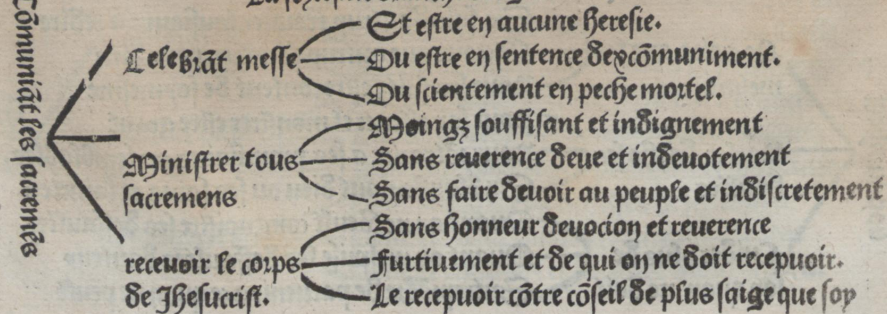 Cõmunicãt les sacremẽs
Celebrãt messe
Et estre en aucune heresie.
Ou estre en sentence dexcõmuniment.
Ou scientement en peche mortel.
Ministrer tous
sacremens
Moingz souffisant et indignement
Sans reuerence deue et indeuotement
Sans faire deuoir au peuple et indiscretement
receuoir le corps
de Jhesucrist.
Sans honneur deuocion et reuerence
Furtiuement et de qui on ne doit recepuoir.
Le recepuoir cõtre cõseil de plus saige que soy